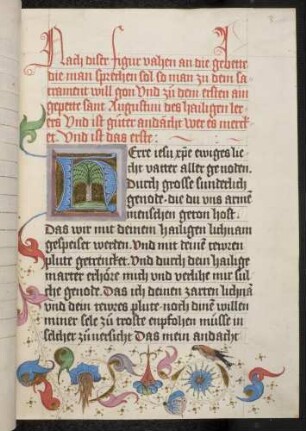 Nach diser figur vahen an die gebette
die man sprechen sol so man zu dem sa-
crament wil gon Vnd zu dem ersten ain
gepette sant Augustini des hailigen ler-
ers Vnd ist guter andacht wer es merck-
et. Vnd ist das erste:
Herre iesu xpe ewiges lie-
cht vatter aller genoden.
Durch grosse sunderlich
genode die du vns armē
menschen geton host.
Das wir mit deinem hailigen lichnam
gespeiset werden. Vnd mit deinē tewren
plute getrencket. Vnd durch dein hailige
marter erhöre mich vnd verlihe mir sul-
che genode. Das ich deinen zarten lichnā
vnd dem tewres plute noch dinē willen
miner sele zu troste enpfohen müsse in
solicher zuuersicht Das mein andacht